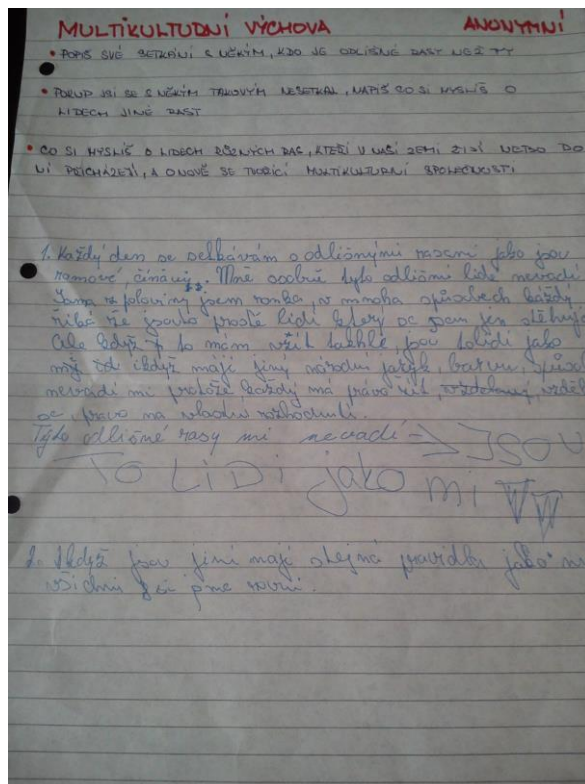 MULTIKULTUDNÍ VÝCHOVA ANONYMNÍ
• POPIŠ SVÉ SETKÁNÍ S NĚKÝM, KDO JE ODLIŠNÉ RASY NEŽ TY
• POKUD JSI SE S NĚKÝM TAKOVÝM NESETKAL, NAPIŠ CO SI MYSLÍŠ O
LIDECH JINÉ RASY
• CO SI MYSLÍŠ O LIDECH RŮZNÝCH RAS, KTEŘÍ V NAŠÍ ZEMI ŽIJÍ NEBO DO
NÍ PŘICHÁZEJÍ, A O NOVĚ SE TVOŘÍCÍ MULTIKULTURNÍ SPOLEČNOSTI
1. Každý den se setkávám s odlišnými rasami jako jsou
romové, číňani. Mně osobně tyto odlišní lidé nevadí
Sama z poloviny jsem romka, v mnoha způsobech každý
říká že jsou to prostě lidi který se sem jen stěhují
Ale když to mám vzít takhle, jsou to lidi jako
my ikdyž mají jiný národní jazyk, barvu,
nevadí mi protože každý má právo žít,
právo na vlastní rozhodnutí.
Tyto odlišné rasy mi nevadí → JSOU
TO LiDi jako mi
2. Ikdyž jsou jiní mají stejná pravidla jako
všichni jsme rovni.